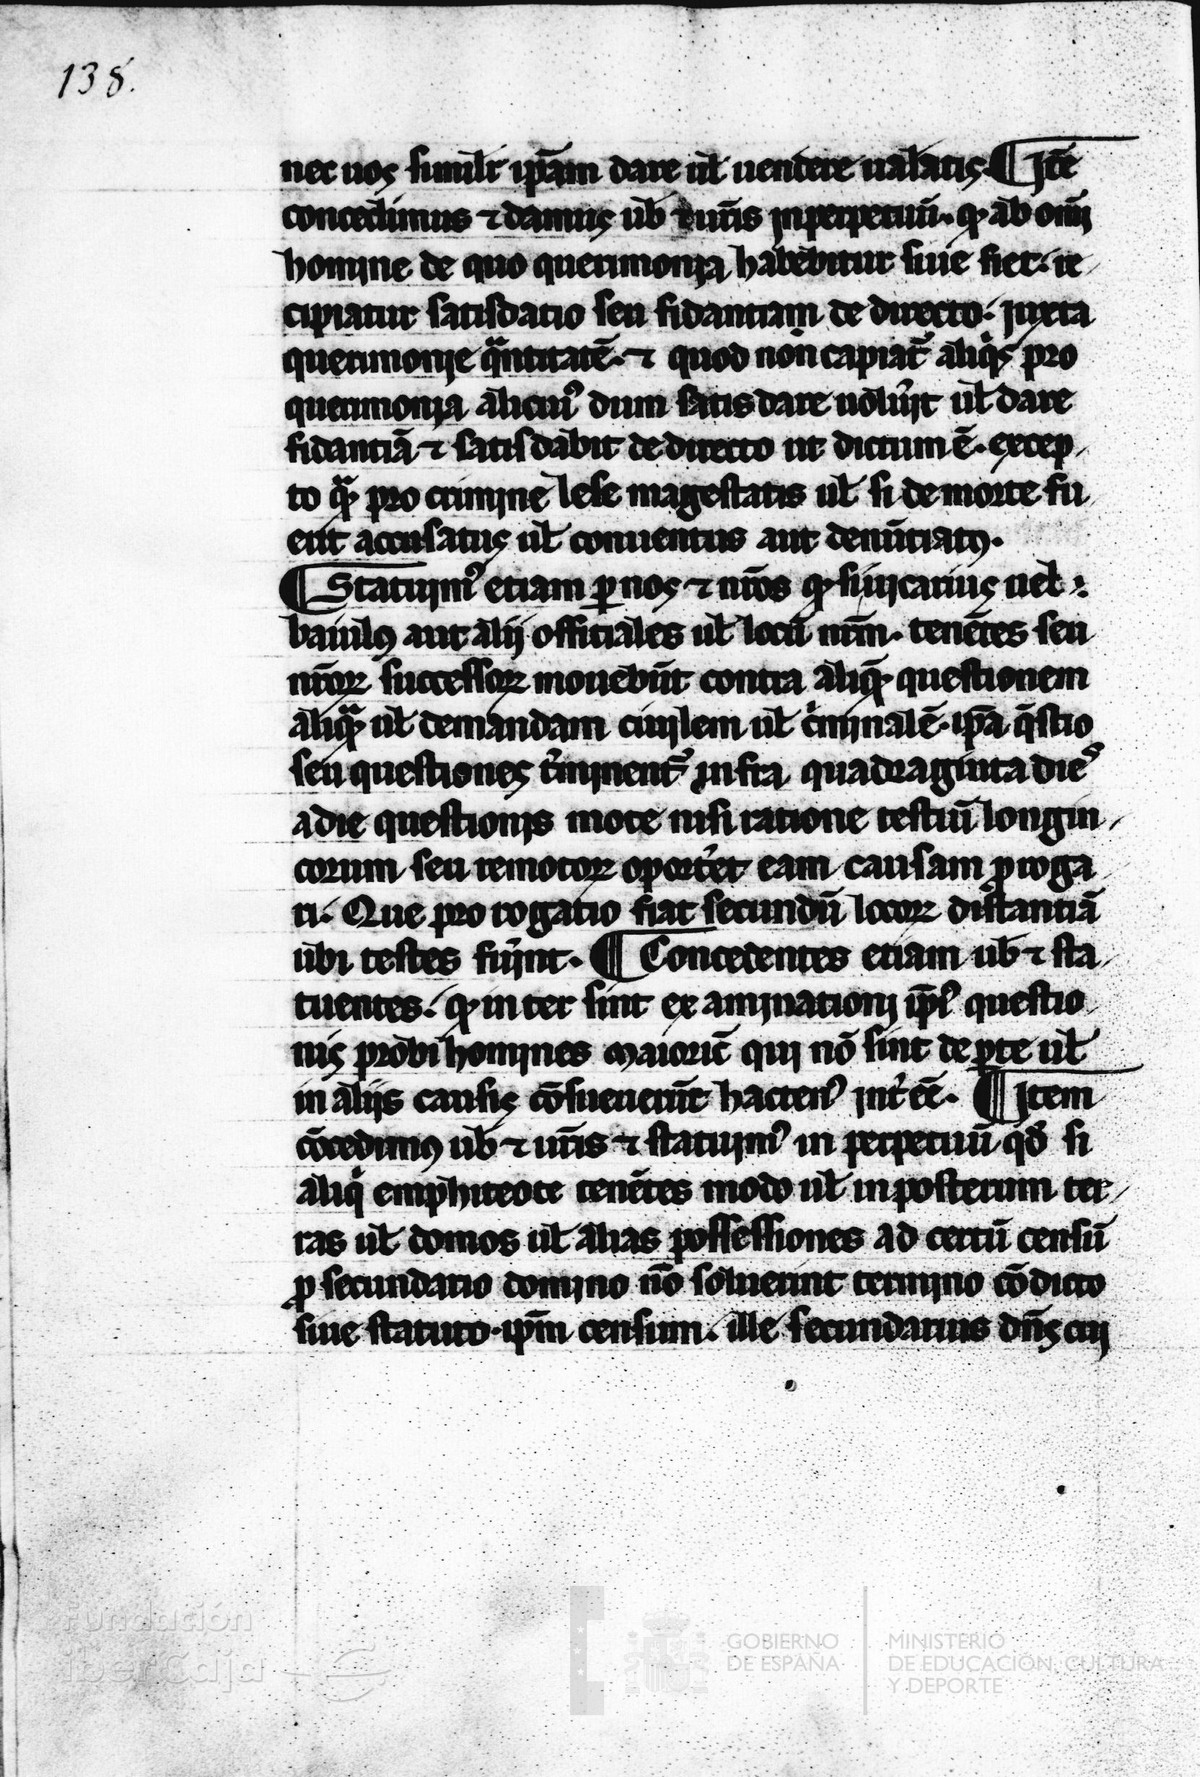 138.
nec uos simil'r ip̃am dare ul' uendere ualeatis. ¶ Itē
concedimus ⁊ damus uob̄ ⁊ ur̃is inperpetuū. qͥ ab omĩ
homine de quo querimonia habebitur siue fiet. re
cipiatur satisdatio seu fidantiam de directo. juxta
querimonie qͣntitatē. ⁊ quod non capiat᷑ aliqͥs pro
querimonia alicui᷒ dum satisdare uolu͛it ul' dare
fidantiā ⁊ satisdabit de directo ut dictum ē. excep
to qͣ pro crimine lese magestatis ul' si de morte fu
erit accusatus ul' conuentus aut denūtiatꝯ.
¶ Statuim᷒ etiam ꝑ nos ⁊ nr̃os qͥ si uicarius uel
baiulꝯ aut alij officiales ul' locū nr̃m. tenētes seu
nr̃oꝝ successoꝝ mouebūt contra aliqͣ questionem
aliqͣ ul' demandam ciuilem ul' cͥminalē. ip̃a q̃stio
seu questiones t͛minent᷑ infra quadraginta dies
a die questionis mote nisi ratione testiū longin
corum seu remotoꝝ oport͛et eam causam proroga
ri. Que prorogatio fiat secundū locoꝝ distantiā
ubi testes fu͛int. ¶ Concedentes etiam uob̄ ⁊ sta
tuentes. qͥ inter sint examinationi ip̃i᷒ questio
nis probi homines maioric̃ qui nō sint de ꝑte ul'
in alijs causis cōsueuerūt hacten᷒ int͛ eē. ¶ Item
cōcedimꝯ uob̄ ⁊ ur̃is ⁊ statuim᷒ in perpetuū qd̄ si
aliqͥ emphiteote tenētes modo ul' inposterum ter
ras ul' domos ul' alias possessiones ad certū censū
ꝓ secundario domino nō soluerint termino cōdicto
siue statuto. ip̃m censum. ille secundarius dñs cui
Fundación
iberCaja
GOBIERNO
DE ESPAÑA
MINISTERIO
DE EDUCACIÓN, CULTURA
Y DEPORTE